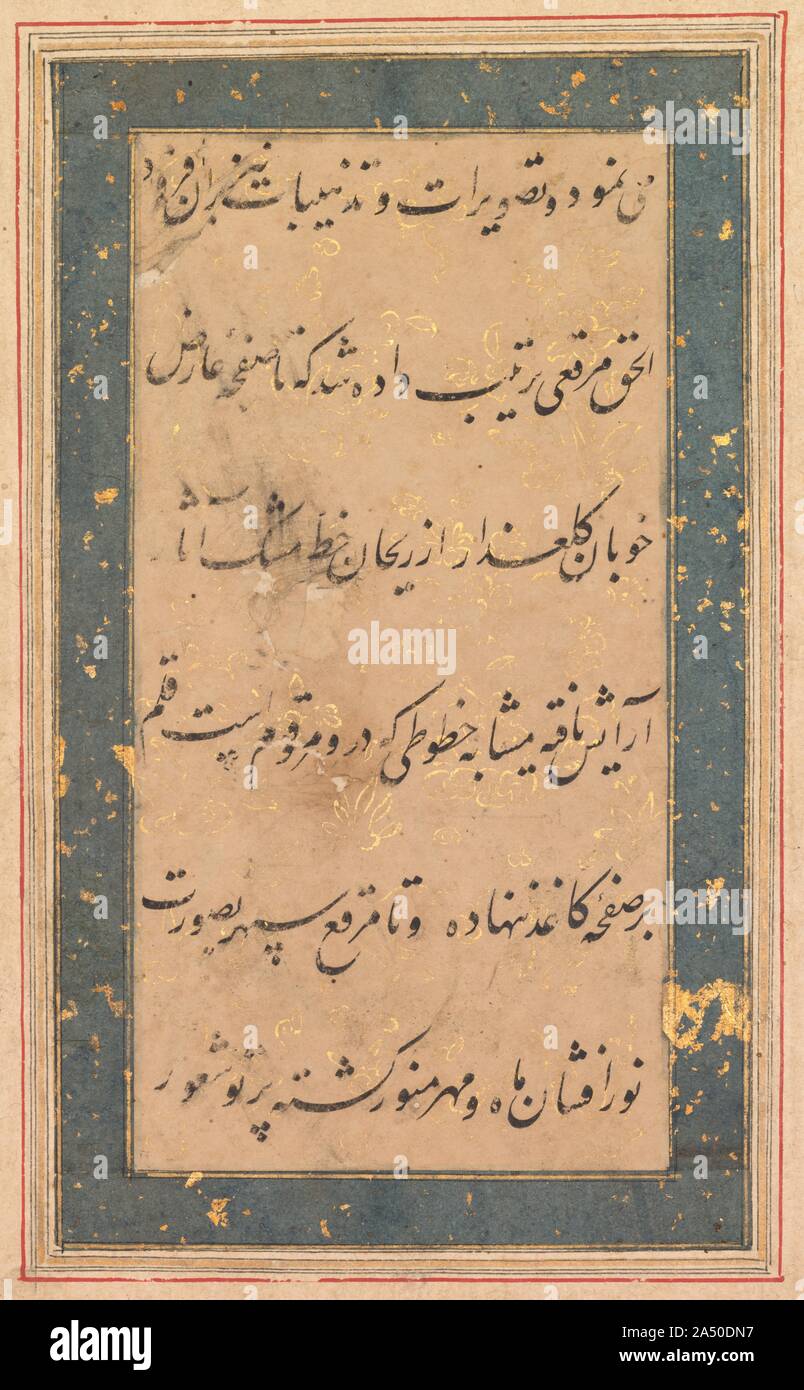 می نمود و تصویرات و تذهیبات نیز بران افزود
الحق مرقعی ترتیب داده شد که تا صفحهٔ عارض
خوبان گلعذار از ریحان خط مشک آسا
آرایش یافته مشابه خطوطی که در و مرقوم است قلم
بر صفحهٔ کاغذ ننهاده و تا مرقع سپهر بصورت
نور افشان ماه و مهر منور گشته پرتو شعور
alamy
Image ID: 2A50DN7
www.alamy.com